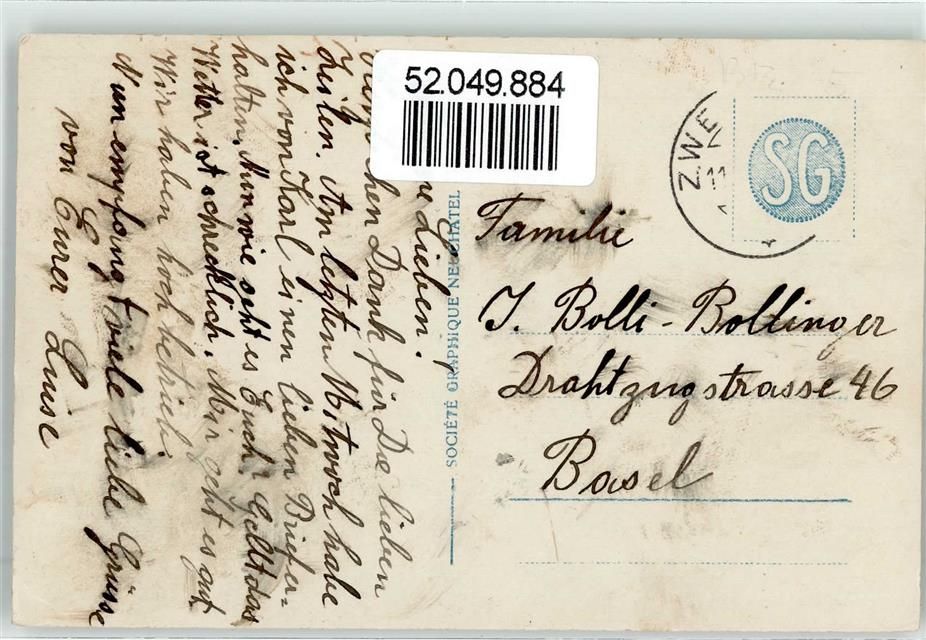 52.049.884
ZWE
11
SG
SOCIÉTÉ GRAPHIQUE NEUCHATEL
Familie
J. Bolli-Bollinger
Drahtzugstrasse 46
Basel
Lieben!
Dank für Die lieben
Zeilen. Am letzten Mitwoch habe
ich von Karl einen lieben Brief er-
halten. Nun wie geht es Euch? Gellt das
Wetter ist schrecklich. Mir geht es gut
Wir haben hochbetrieb.
Nun empfangt viele liebe Grüsse
von Eurer Luise